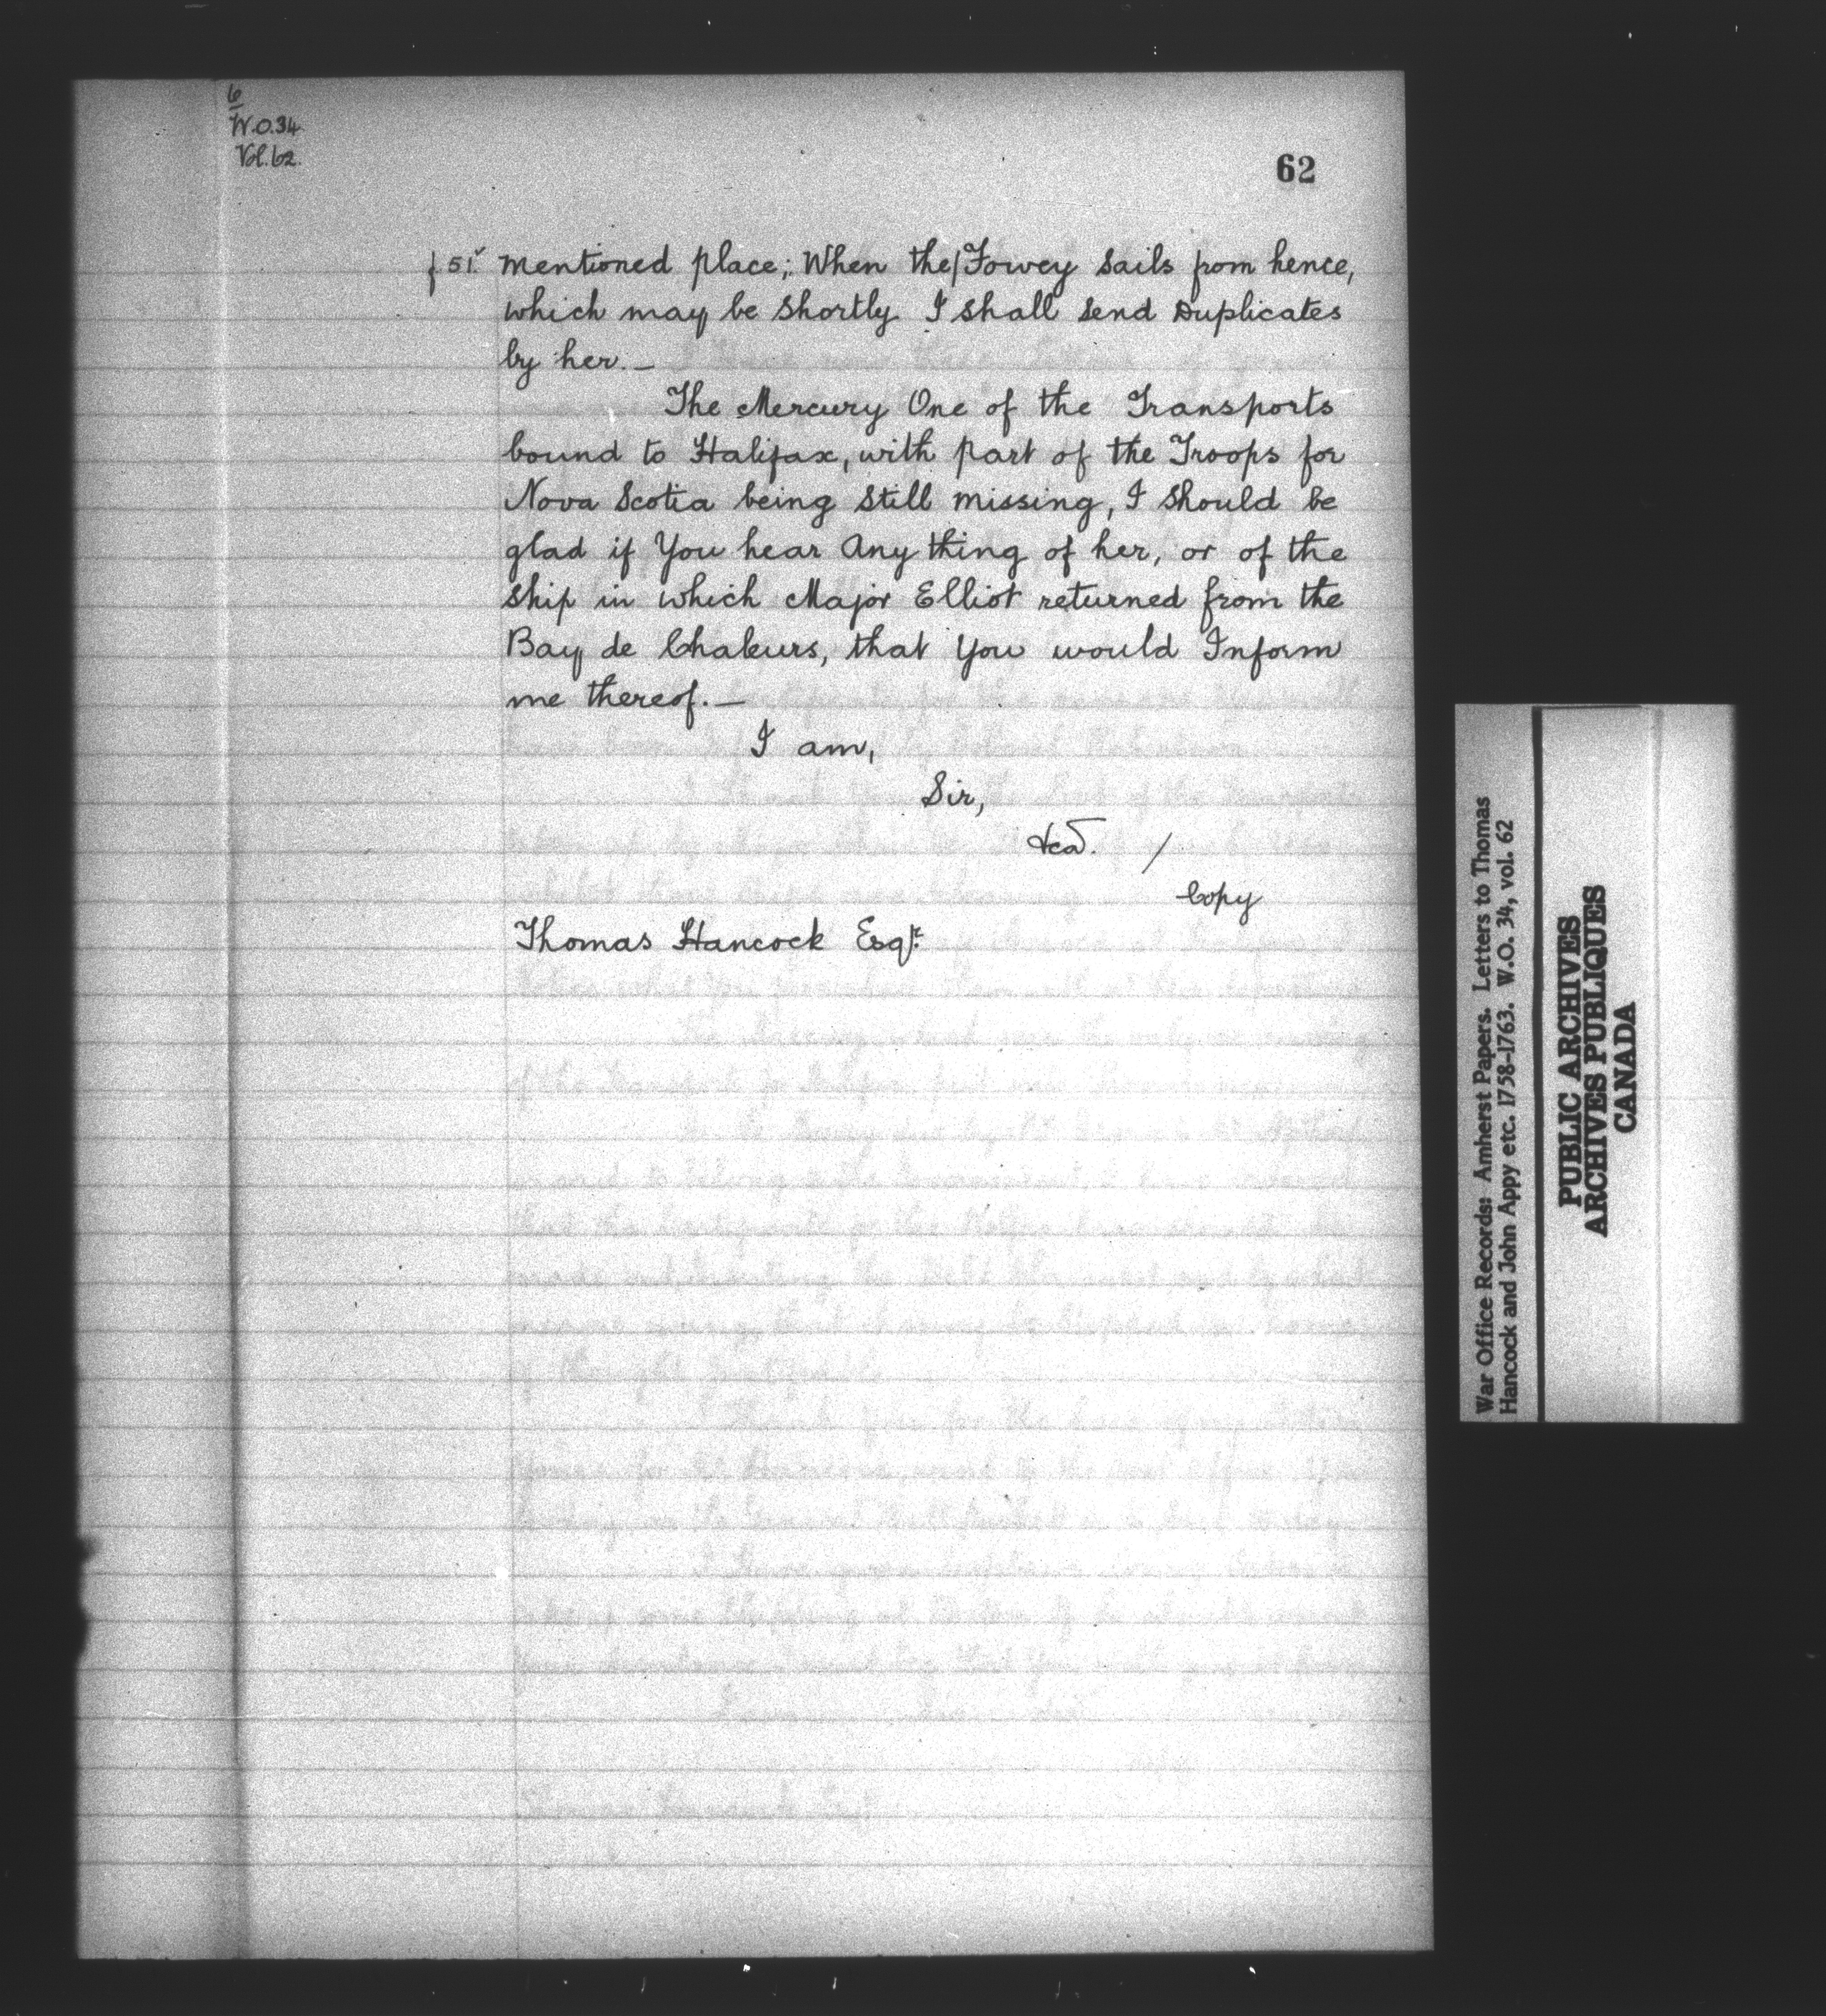 6
W.O.34
Vol.62.
62
f 51.v mentioned place; When the/Fowey Sails from hence,
which may be Shortly I shall Send Duplicates
by her.—
The Mercury One of the Transports
bound to Halifax, with part of the Troops for
Nova Scotia being Still missing, I Should be
glad if You hear Any thing of her, or of the
Ship in which Major Elliot returned from the
Bay de Chaleurs, that You would Inform
me thereof.—
I am,
Sir,
&ca. /
Copy
Thomas Hancock Esqr.
War Office Records: Amherst Papers. Letters to Thomas
Hancock and John Appy etc. 1758-1763. W.O. 34, vol. 62
PUBLIC ARCHIVES
ARCHIVES PUBLIQUES
CANADA